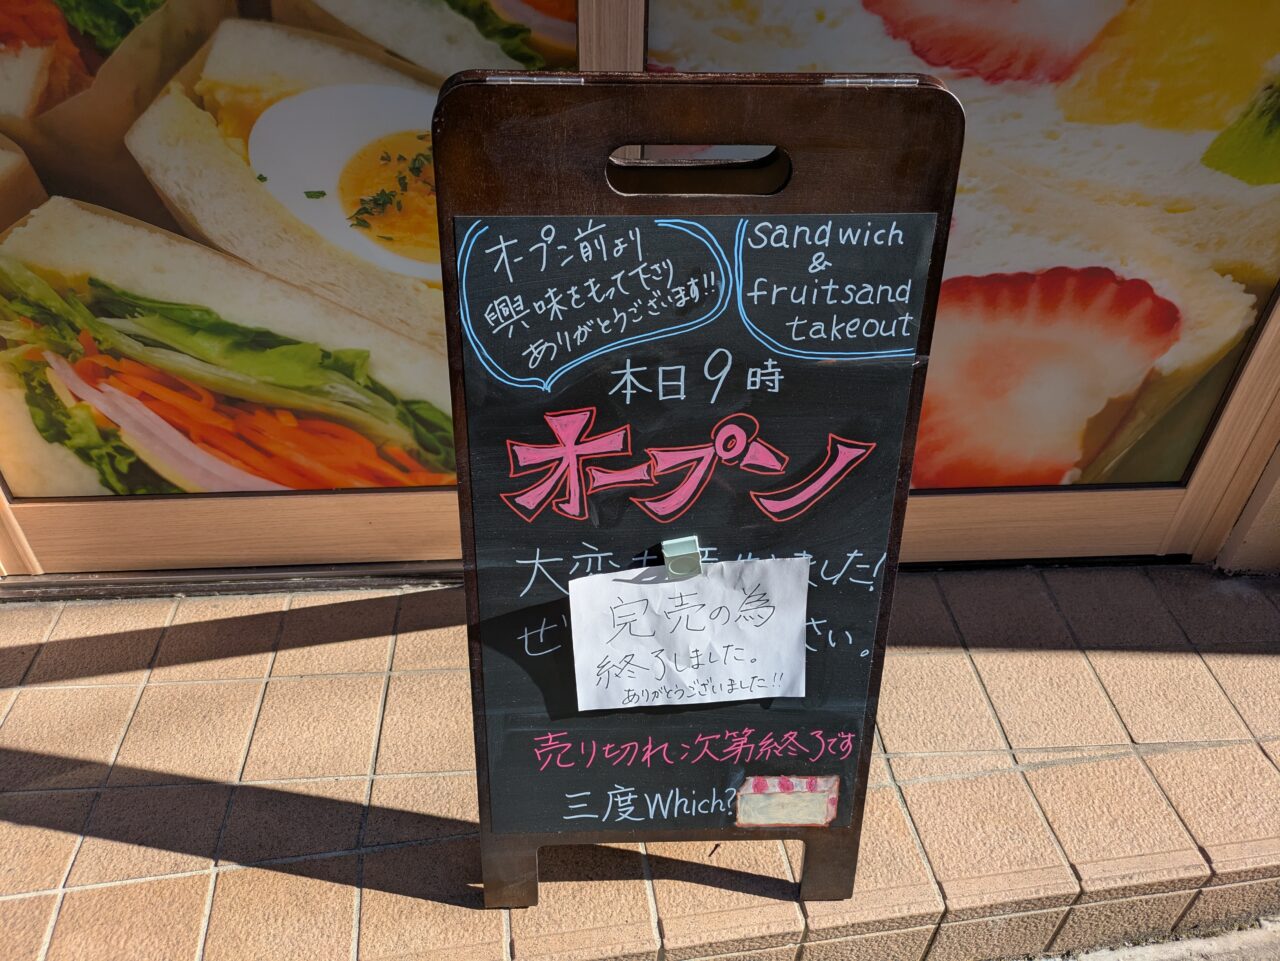 オープン前より
興味をもって下さり
ありがとうございます!!
sandwich
&
fruitsand
takeout
本日9時
オープン
大変
ました!
ぜ
さい。
完売の為
終了しました。
ありがとうございました!!
売り切れ次第終了です
三度Which?